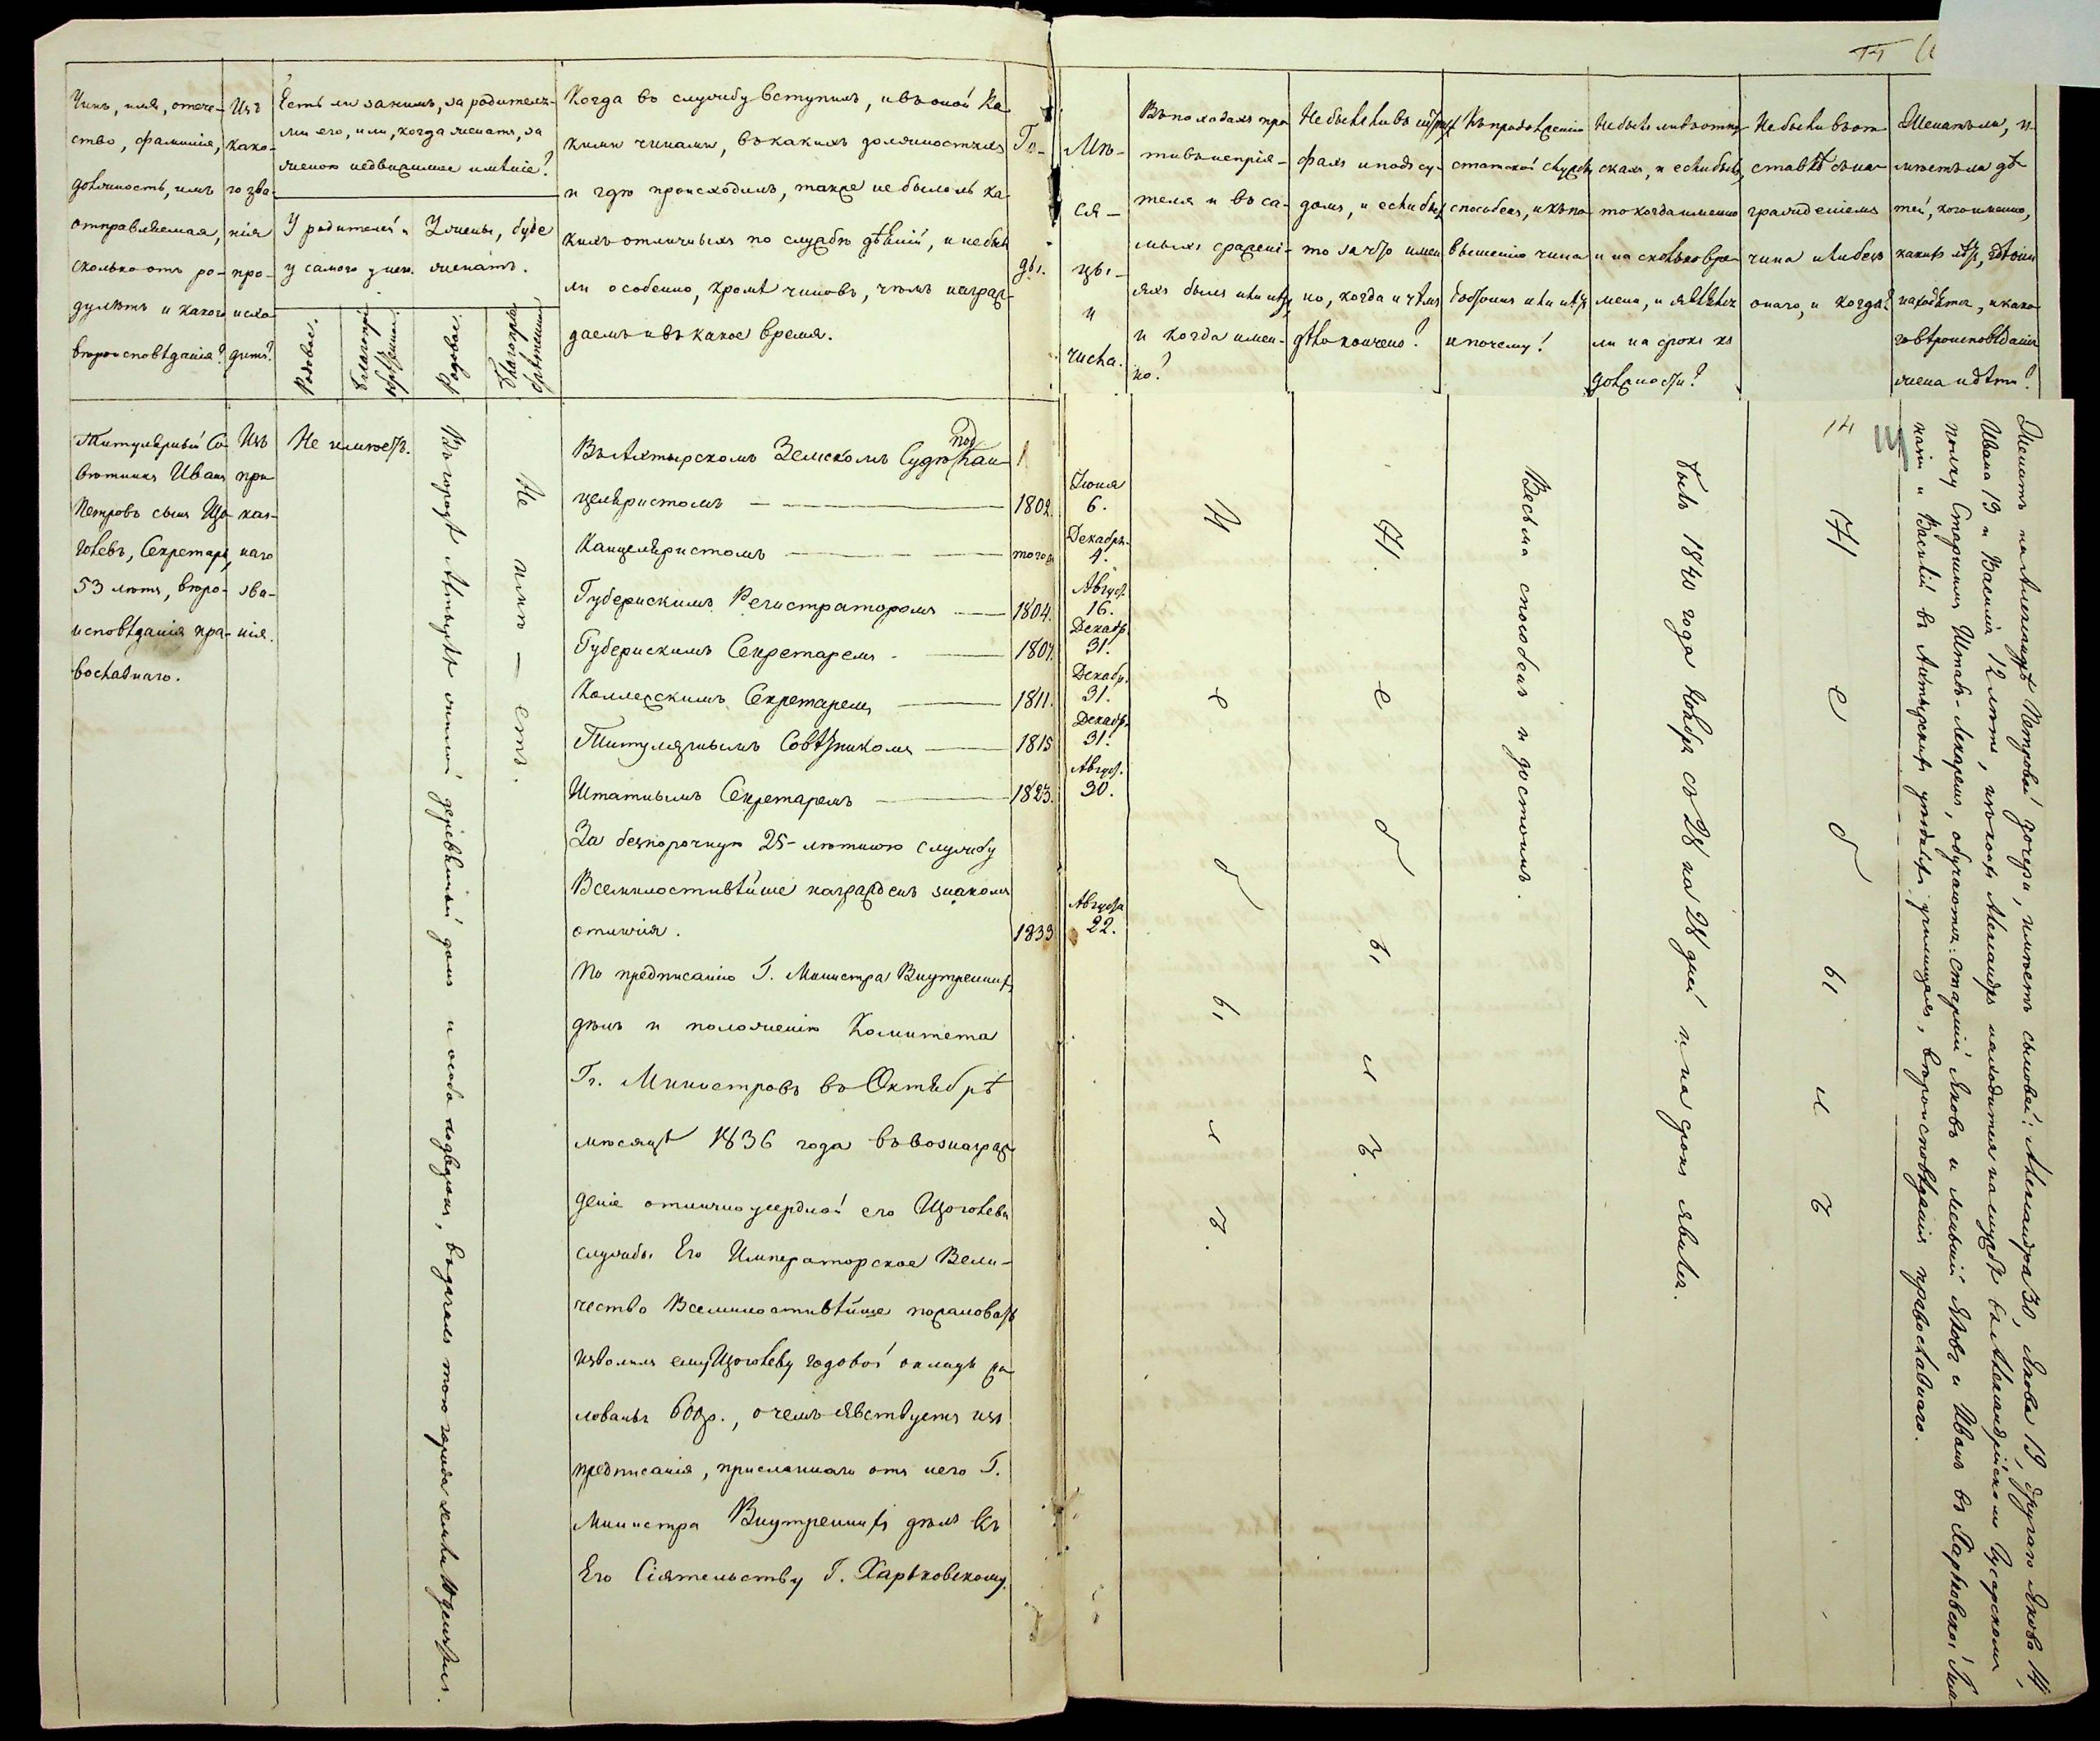 Чинъ, имя, отече-
ство, фамилія,
должность, имъ
отправляемая,
сколько отъ ро-
ду лѣтъ и какого
вѣроисповѣданія?
Изъ
како-
го зва-
нія
про-
исхо-
дитъ?
Есть ли за нимъ, за родителя-
ми его, или, когда женатъ, за
женою недвижимое имѣніе?
У родителей и
у самого у него.
У жены, буде
женатъ.
Родовое.
Благопрі-
обрѣтенное.
Родовое.
Благопрі-
обрѣтенное.
Когда въ службу вступилъ, и въ оной ка-
кими чинами, въ какихъ должностяхъ
и гдѣ происходилъ, также не было ль ка-
кихъ отличныхъ по службѣ дѣяній, и не былъ
ли особенно, кромѣ чиновъ, чѣмъ награж-
даемъ и въ какое время.
Го-
ды.
Мѣ-
ся-
цы-
и
числа.
Въ походахъ про-
тивъ непрія-
теля и въ са-
мыхъ сраженi-
яхъ былъ или нѣтъ,
и когда имен-
но?
Не былъ ли въ штра-
фахъ и подъ су-
домъ, и если былъ,
то за что имен-
но, когда и чѣмъ
дѣло кончено?
Къ продолженію
статской службы
способенъ, и къ по-
вышенію чина
достоинъ или нѣтъ
и почему?
Не былъ ли въ отпу-
скахъ, и если былъ,
то когда именно
и на сколько вре-
мени, и явился
ли на срокъ къ
должности?
Не былъ ли въ от-
ставкѣ съ на-
гражденіемъ
чина или безъ
онаго, и когда?
Женатъ ли, и-
мѣетъ ли дѣ-
тей, кого именно,
какихъ лѣтъ, гдѣ они
находятся, и како-
го вѣроисповѣданія
жена и дѣти?
Титулярный Со-
вѣтникъ Иванъ
Петровъ сынъ Що-
голевъ, Секретарь,
53 лѣтъ, вѣро-
исповѣданія пра-
вославнаго.
Изъ
при-
каз-
наго
зва-
нія.
Не имѣетъ.
Въ городѣ Ахтыркѣ жилой деревянный домъ и особо подворокъ, въ дачахъ того города земли 10 десятинъ.
Не имѣ-етъ.
Въ Ахтырскомъ Земскомъ Судѣ под кан-
целяристомъ
1802.
Іюня
6.
Канцеляристомъ
того ж
Декабря.
4.
Губернскимъ Регистраторомъ
1804.
Август.
16.
Губернскимъ Секретаремъ
1807.
Декабр.
31.
Коллежскимъ Секретаремъ
1811.
Декабр.
31.
Титулярнымъ Совѣтникомъ
1815
Декабр.
31.
Штатнымъ Секретаремъ
1823.
Август.
30.
За безпорочную 25-лѣтнюю службу
Всемилостивѣйше награжденъ знакомъ
отличія.
1833
Августа
22.
По предписанію Г. Министра Внутреннихъ
дѣлъ и положенію Комитета
Гг. Министровъ въ Октябрѣ
мѣсяцѣ 1836 года въ вознаграж-
деніе отлично усердной его Щоголева
службы Его Императорское Вели-
чество Всемилостивѣйше пожаловать
изволилъ ему Щоголеву годовой окладъ жа-
лованья 600р., о чемъ явствуетъ изъ
предписанія, присланнаго отъ него Г.
Министра Внутреннихъ дѣлъ къ
Его Сіятельству Г. Харьковскому
Не былъ.
Не былъ.
Весьма способенъ и достоинъ.
Былъ 1840 года Ноября съ 28 на 28 дней и на срокъ явился.
14
Не былъ
Женатъ на Александрѣ Петровой дочери, имѣетъ сыновей: Александра 30, Якова 19, другаго Якова 14,
Ивана 13 и Василія 12 лѣтъ, изъ коихъ Александръ находится на службѣ въ Александрійскомъ Гусарскомъ
полку Старшимъ Штабъ-Лекаремъ, обучаются: старшій Яковъ и меньшій Яковъ и Иванъ въ Харьковской Гим-
назіи и Василій въ Ахтырскомъ уѣздномъ училищѣ, вѣроисповѣданія православнаго.